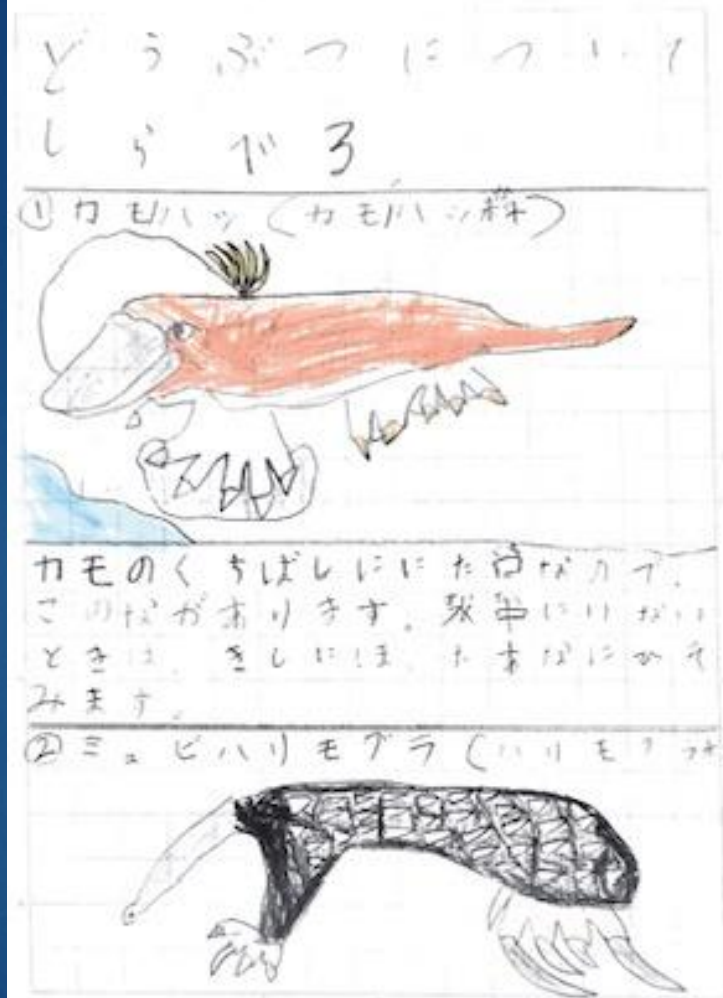 どうぶつについて
しらべる
①カモノハシ(カモノハシ科)
カモのくちばしににた口なので、
このながあります。水中にいない
ときは、きしにほったあなにひそ
みます。
②ミユビハリモグラ(ハリモグラ科